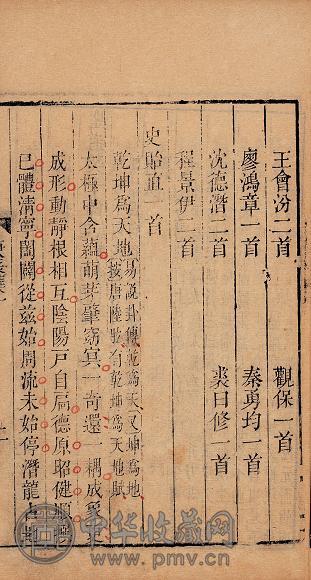 王會汾二首 觀保一首
廖鴻章一首 秦勇均一首
沈德潛二首 裘曰修一首
程景伊二首
史貽直一首
乾坤爲天地 易說卦傳乾爲天又坤爲地
按唐陸肱有乾坤爲天地賦
太極中含蘊萌芽肇窈冥一奇還一耦成象
成形動靜根相互陰陽戸自扃德原昭健順
已體清寧闔闢從兹始周流未始停潛龍
中华收藏网
www.pmv.cn